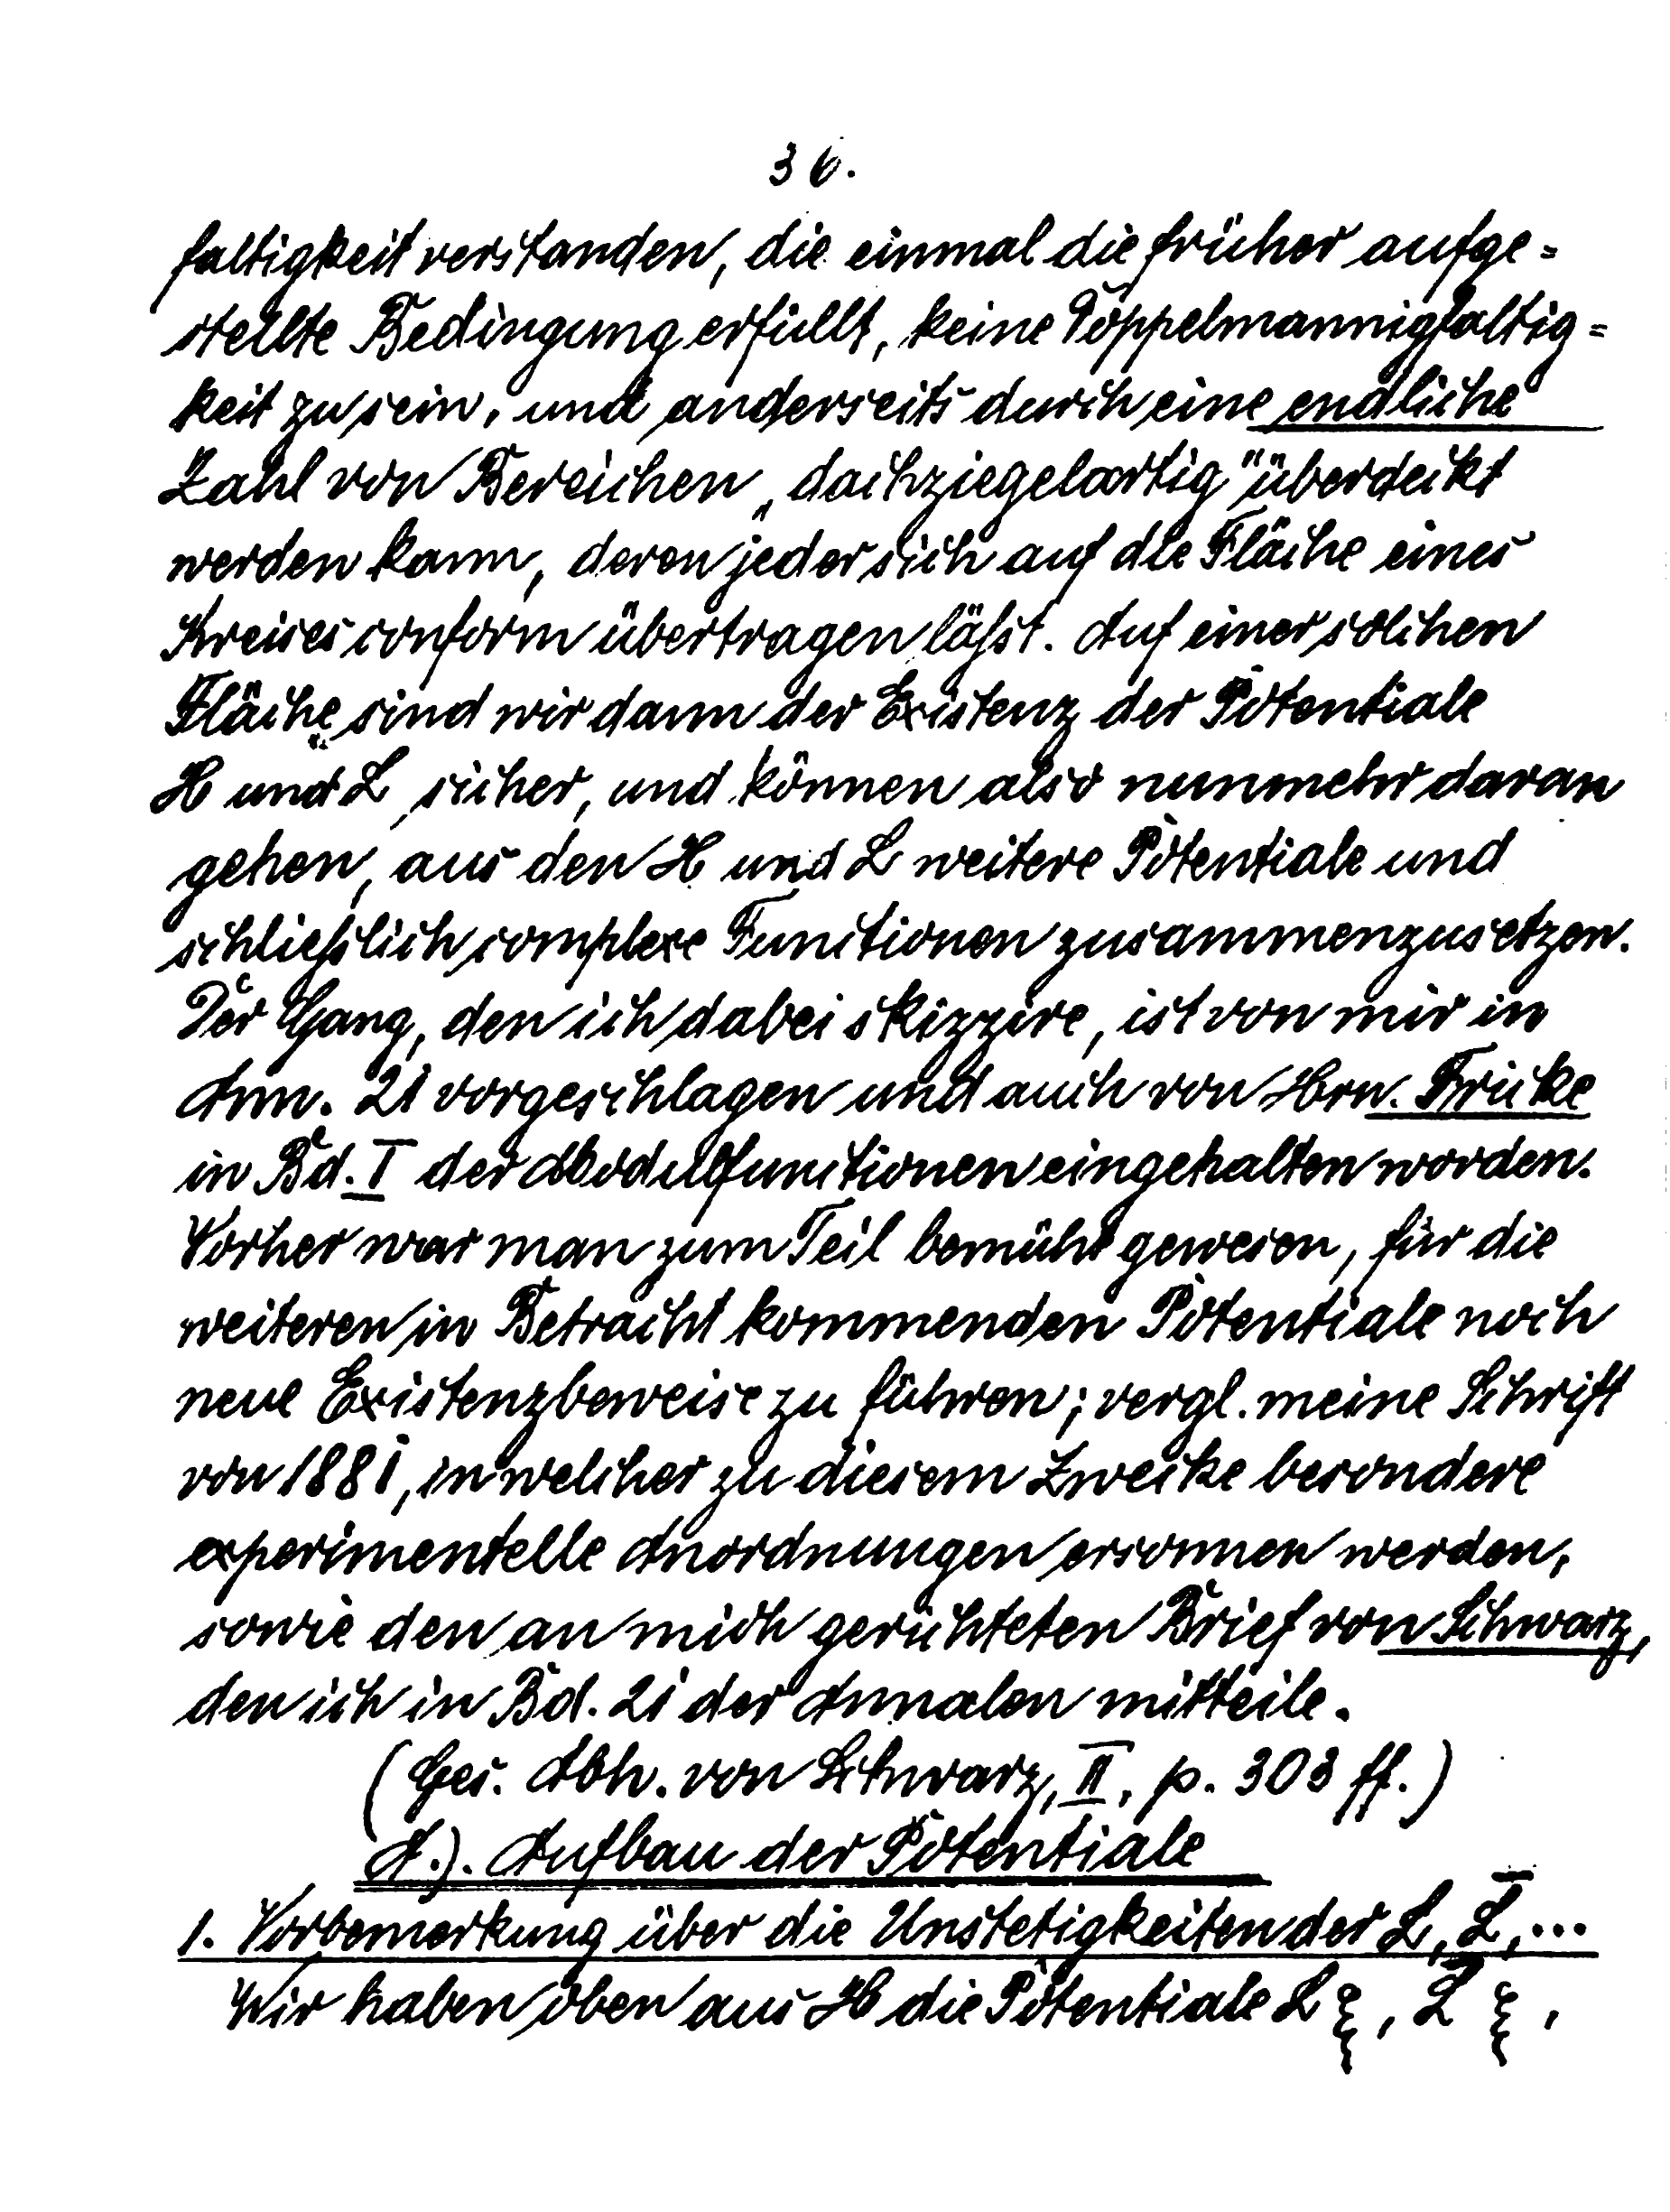 36.
faltigkeit verstanden, die einmal die früher aufge=
stellte Bedingung erfüllt, keine Doppelmannigfaltig=
keit zu sein, und anderseits durch eine endliche
Zahl von Bereichen „dachziegelartig" überdeckt
werden kann, deren jeder sich auf die Fläche eines
Kreises conform übertragen läßt. Auf einer solchen
Fläche sind wir dann der Existenz der Potentiale
H und L sicher, und können also nunmehr daran
gehen, aus den H und L weitere Potentiale und
schließlich complexe Functionen zusammenzusetzen.
Der Gang, den ich dabei skizzire, ist von mir in
Ann. 21 vorgeschlagen und auch von Hrn. Fricke
in Bd. I der Modulfunctionen eingehalten worden.
Vorher war man zum Teil bemüht gewesen, für die
weiteren in Betracht kommenden Potentiale noch
neue Existenzbeweise zu führen; vergl. meine Schrift
von 1881, in welcher zu diesem Zwecke besondere
experimentelle Anordnungen ersonnen werden,
sowie den an mich gerichteten Brief von Schwarz,
den ich in Bd. 21 der Annalen mitteile.
(Ges. Abh. von Schwarz, II, p. 303 ff.)
A.). Aufbau der Potentiale
1. Vorbemerkung über die Unstetigkeiten der L, L̅, ...
Wir haben oben aus H die Potentiale L ξ, L̅ ξ,